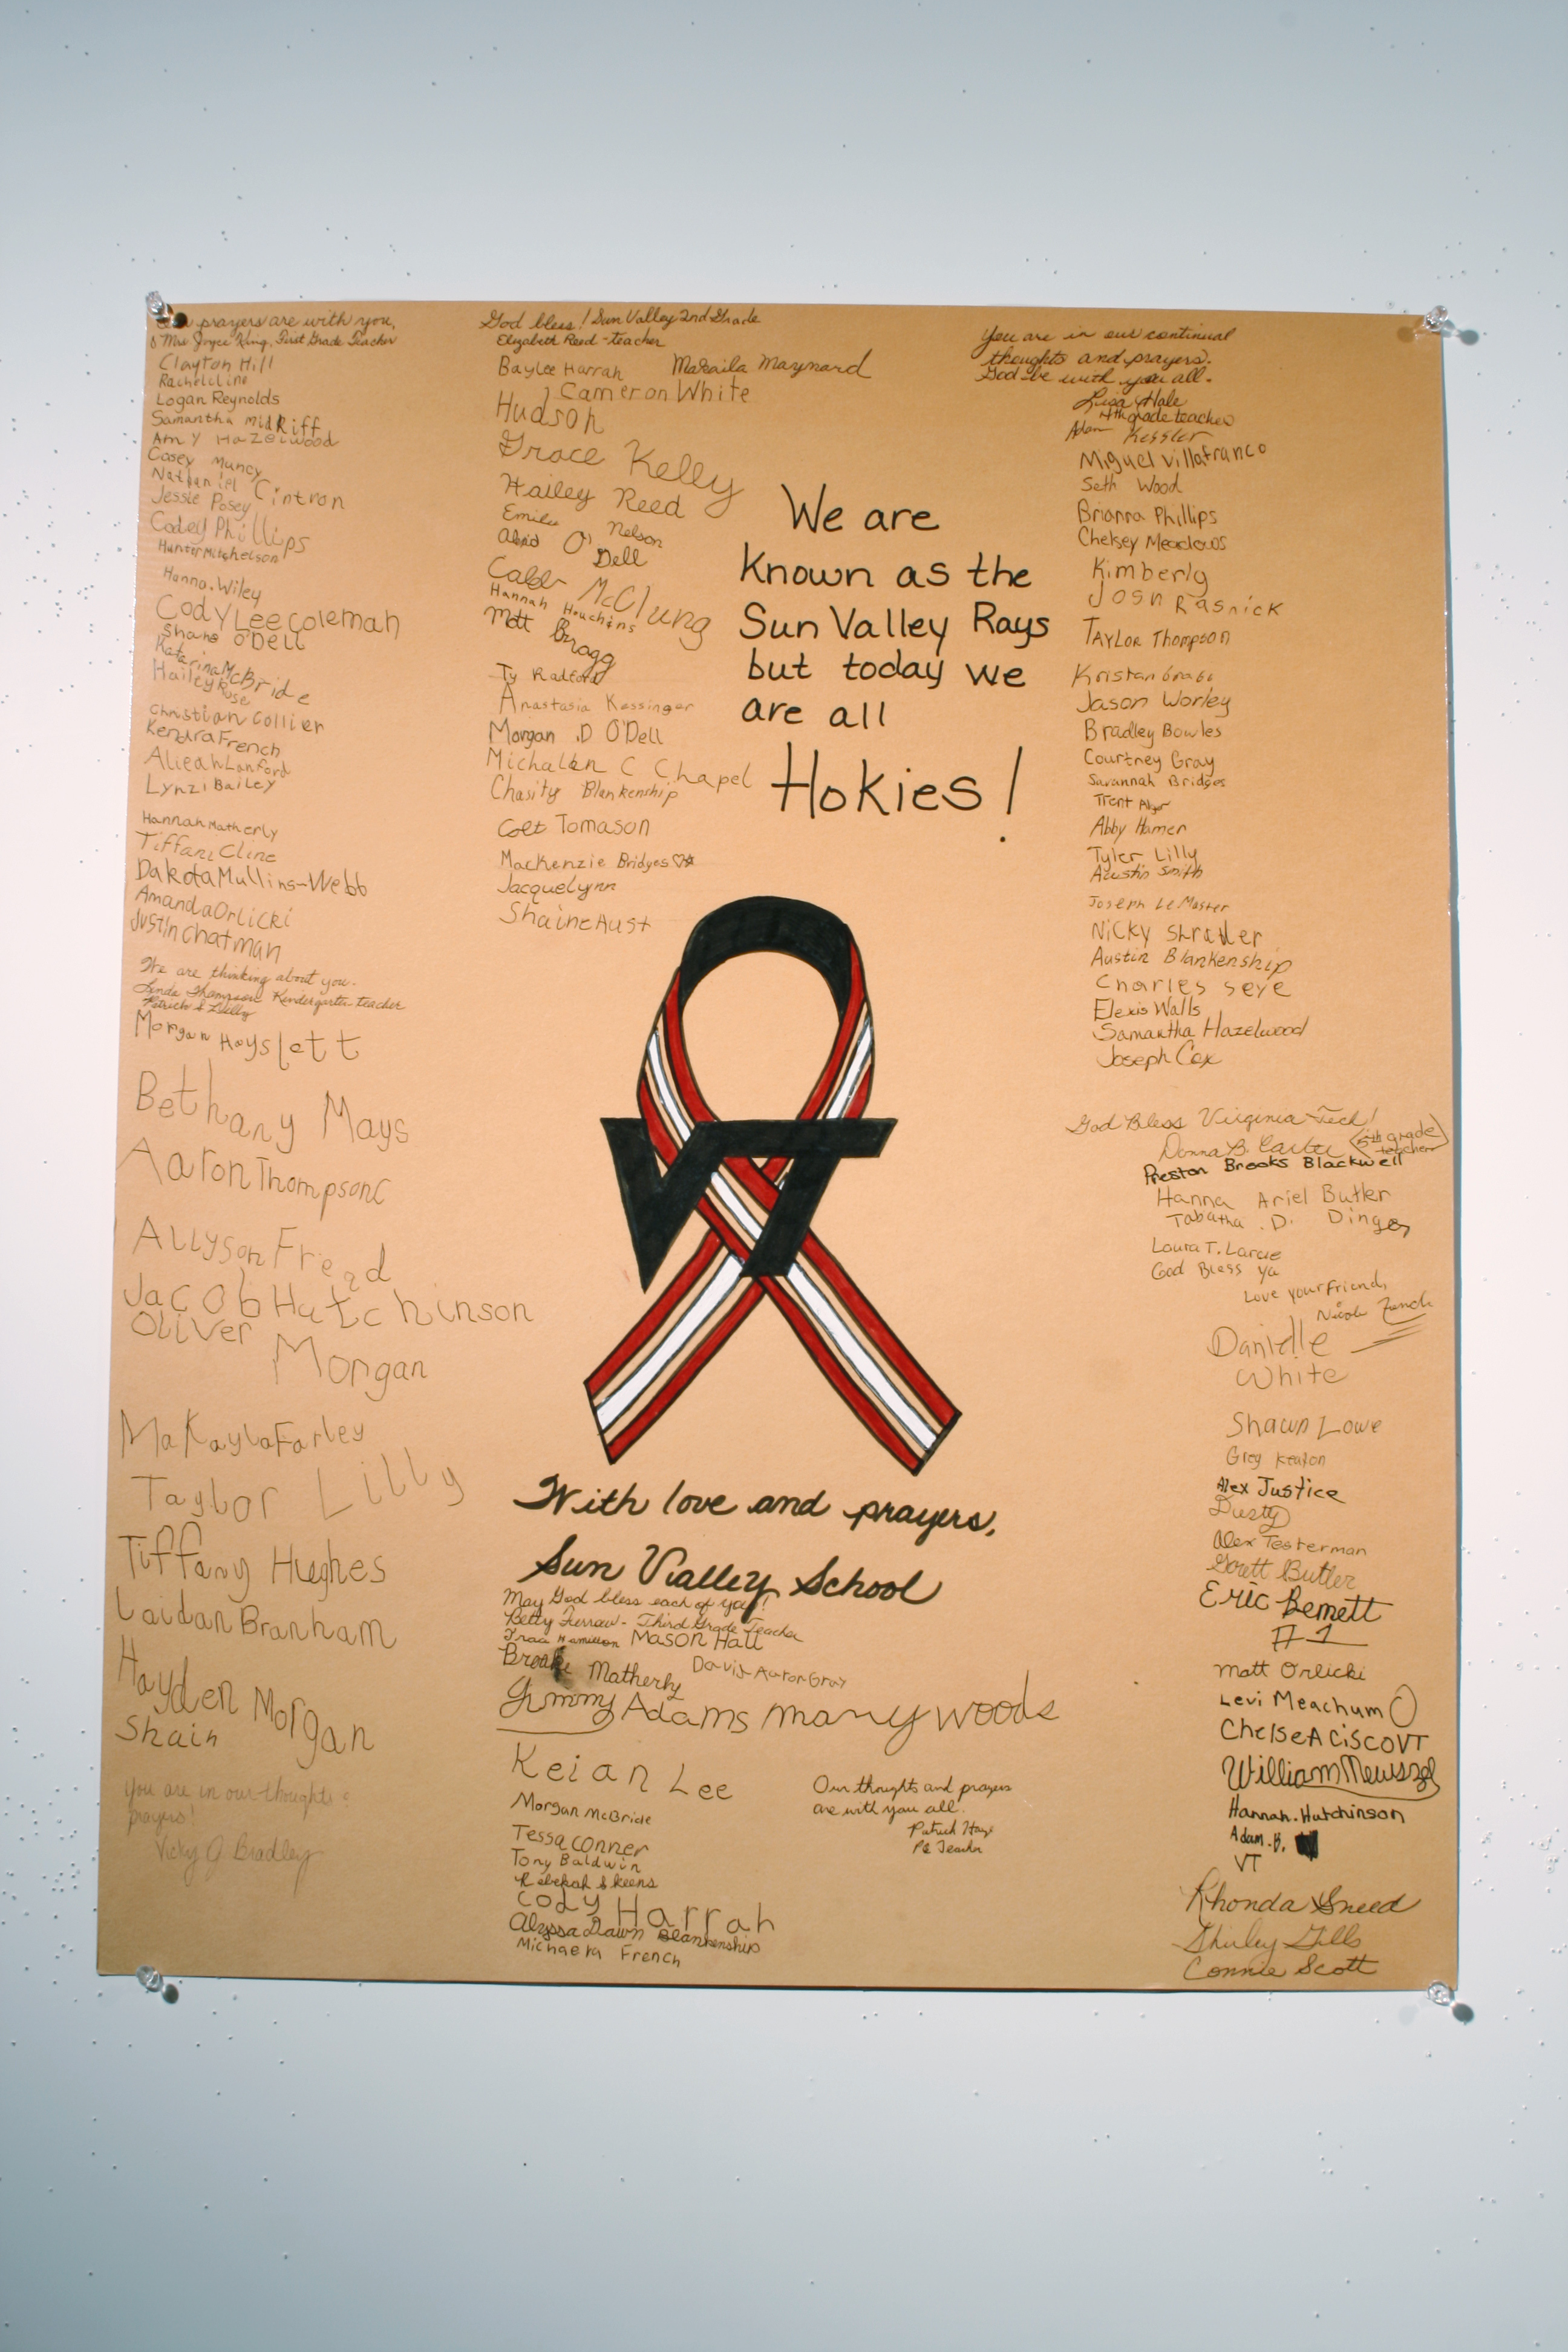 prayers are with you,
Mrs Joyce King, First Grade Teacher
Clayton Hill
Rachel Cline
Logan Reynolds
Samantha Midkiff
Amy Hazelwood
Casey Muncy
Nathaniel Cintron
Jessie Posey
Codey Phillips
Hunter Mitchelson
Hanna. Wiley
Cody Lee Coleman
Shane O'Dell
Katarina McBride
Hailey Ruse
Christian Collier
Kendra French
Alieah Lanford
Lynzi Bailey
Hannah Matherly
Tiffani Cline
Dakota Mullins-Webb
Amanda Orlicki
Justin Chatman
We are thinking about you.
Linda Thompson Kindergarten teacher
Patrick
Morgan Hayslett
Bethany Mays
Aaron Thompson C
Allyson Friend
Jacob Hutchinson
Oliver
Morgan
Makayla Farley
Taylor Lilly
Tiffany Hughes
Laidan Branham
Hayden Morgan
Shain
you are in our thoughts &
prayers!
Vicky J. Bradley
God bless! Sun Valley 2nd Grade
Elizabeth Reed - teacher
Baylee Harrah Makaila Maynard
Cameron White
Hudson
Grace Kelly
Hailey Reed
Emilee Nelson
O'Dell
Caleb McClung
Hannah Houchins
Matt Bragg
Ty Radford
Anastasia Kessinger
Morgan .D O'Dell
Michalen C Chapel
Chasity Blankenship
Colt Tomason
Mackenzie Bridges ♡☆
Jacquelynn
Shaine Aust
We are
Known as the
Sun Valley Rays
but today we
are all
Hokies!
VT
With love and prayers,
Sun Valley School
May God bless each of you!
Betty Furrow - Third Grade Teacher
Traci Hamilton Mason Hall
Brooke Matherly David Aaron Gray
Jimmy Adams many woods
Keian Lee
Morgan McBride
Tessa Conner
Tony Baldwin
Rebekah Skeens
Cody Harrah
Alyssa Dawn Blankenship
Michaela French
Our thoughts and prayers
are with you all.
Patrick Hayes
PE Teacher
You are in our continual
thoughts and prayers.
God be with you all.
Lisa Hale
4th grade teacher
Adam Kessler
Miguel Villafranco
Seth Wood
Brianna Phillips
Chelsey Meadows
Kimberly
Josh Rasnick
Taylor Thompson
Kristan Bragg
Jason Worley
Bradley Bowles
Courtney Gray
Savannah Bridges
Trent
Abby Hamer
Tyler Lilly
Austin Smith
Joseph LeMaster
Nicky Shrader
Austin Blankenship
Charles Seye
Elexis Walls
Samantha Hazelwood
Joseph Cox
God Bless Virginia Tech!
Donna B. Carter 5th grade teacher
Preston Brooks Blackwell
Hanna Ariel Butler
Tabatha .D. Dinges
Laura T. Larue
God Bless Ya
Love your friend,
Nicole
Danielle
White
Shawn Lowe
Greg Keaton
Alex Justice
Dusty
Alex Testerman
Garett Butler
Eric Bennett
#1
Matt Orlicki
Levi Meachum
Chelsea Cisco VT
William
Hannah. Hutchinson
Adam. B.
VT
Rhonda Sneed
Shirley Gills
Connie Scott